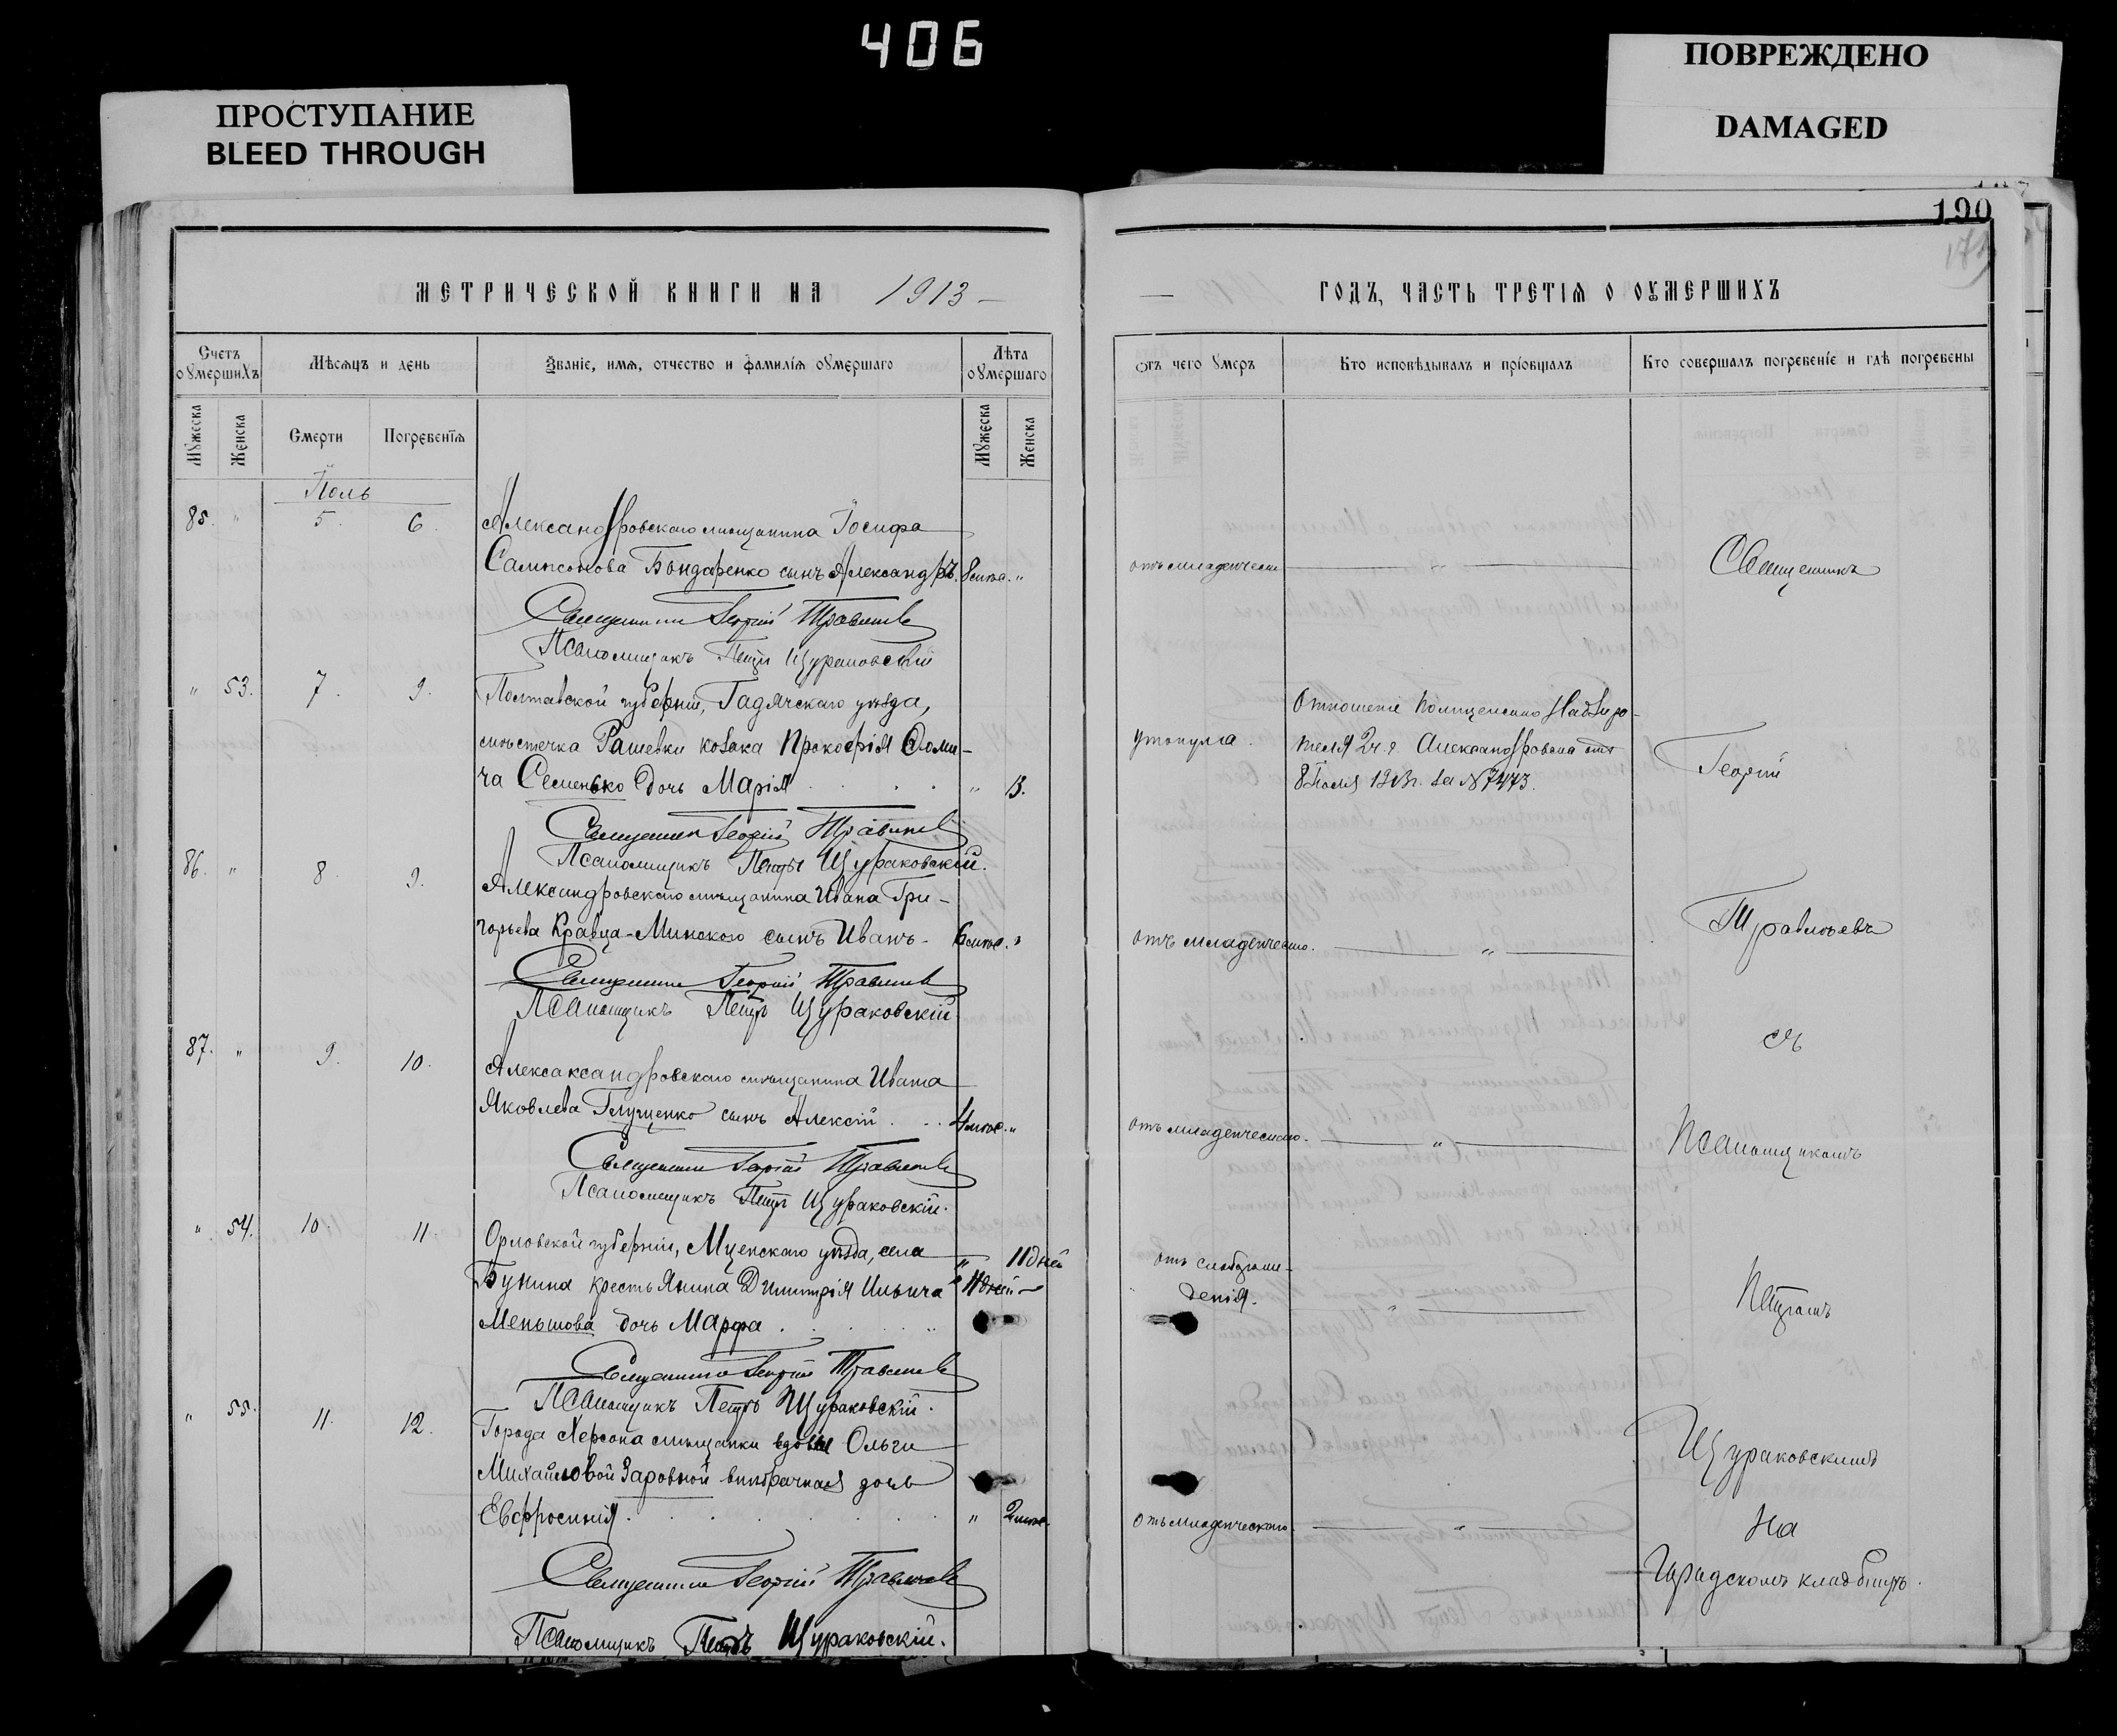 406
ПРОСТУПАНИЕ
BLEED THROUGH
ПОВРЕЖДЕНО
DAMAGED
190
МЕТРИЧЕСКОЙ КНИГИ НА 1913
ГОДЪ, ЧАСТЬ ТРЕТІЯ О ОУМЕРШИХЪ
Счетъ оумершихъ
Мѣсяцъ и день
Званіе, имя, отчество и фамилія оумершаго
Лѣта оумершаго
Отъ чего умеръ
Кто исповѣдывалъ и пріобщалъ
Кто совершалъ погребеніе и гдѣ погребены
Мужеска
Женска
Смерти
Погребенія
Мужеска
Женска
Іюль
85. " 5. 6. Александровскаго мѣщанина Іосифа
Самисонова Бондаренко сынъ Александръ. 8 мѣся. "
отъ младенческ — " — Священникъ
Священникъ Георгій
Псаломщикъ Петръ Щураковскій
" 53. 7. 9. Полтавской губерніи, Гадячскаго уѣзда,
мѣстечка Рашевки козака Прокофія Ѳоми-
ча Семенько дочь Марія " 13.
утонула.
Отношеніе Полицейскаго Надзира-
теля 2 ч. г. Александровска отъ
8 Іюля 1913 г. за № 7473.
Георгій
Священник Георгій
Псаломщикъ Петръ Щураковскій.
86. " 8. 9. Александровскаго мѣщанина Ивана Гри-
горьева Кравца-Минского сынъ Иванъ - 6 мѣс. "
отъ младенческаго. — " —
Священник Георгій
Псаломщикъ Петръ Щураковскій
87. " 9. 10. Алексаксандровскаго мѣщанина Ивана
Яковлева Глущенко сынъ Алексій . . . 4 мѣс. "
отъ младенческаго. — " —
съ
Псаломщикомъ
Священник Георгій
Псаломщикъ Петръ Щураковскій.
" 54. 10. 11. Орловской губерніи, Мценскаго уѣзда, села
Бунина крестьянина Димитрія Ильича
Меньшова дочь Марфа . " 11 дней
" 11 дней
денія. " —
Петромъ
Священник Георгій
Псаломщикъ Петръ Щураковскій.
" 55. 11. 12. Города Херсона мѣщанки вдовы Ольги
Михайловой Заровной внѣбрачная дочь
Евфросинія " 2 мѣс.
отъ младенческаго. — " —
Щураковскимъ
На
Городскомъ кладбищѣ.
Священник Георгій
Псаломщикъ Петръ Щураковскій.